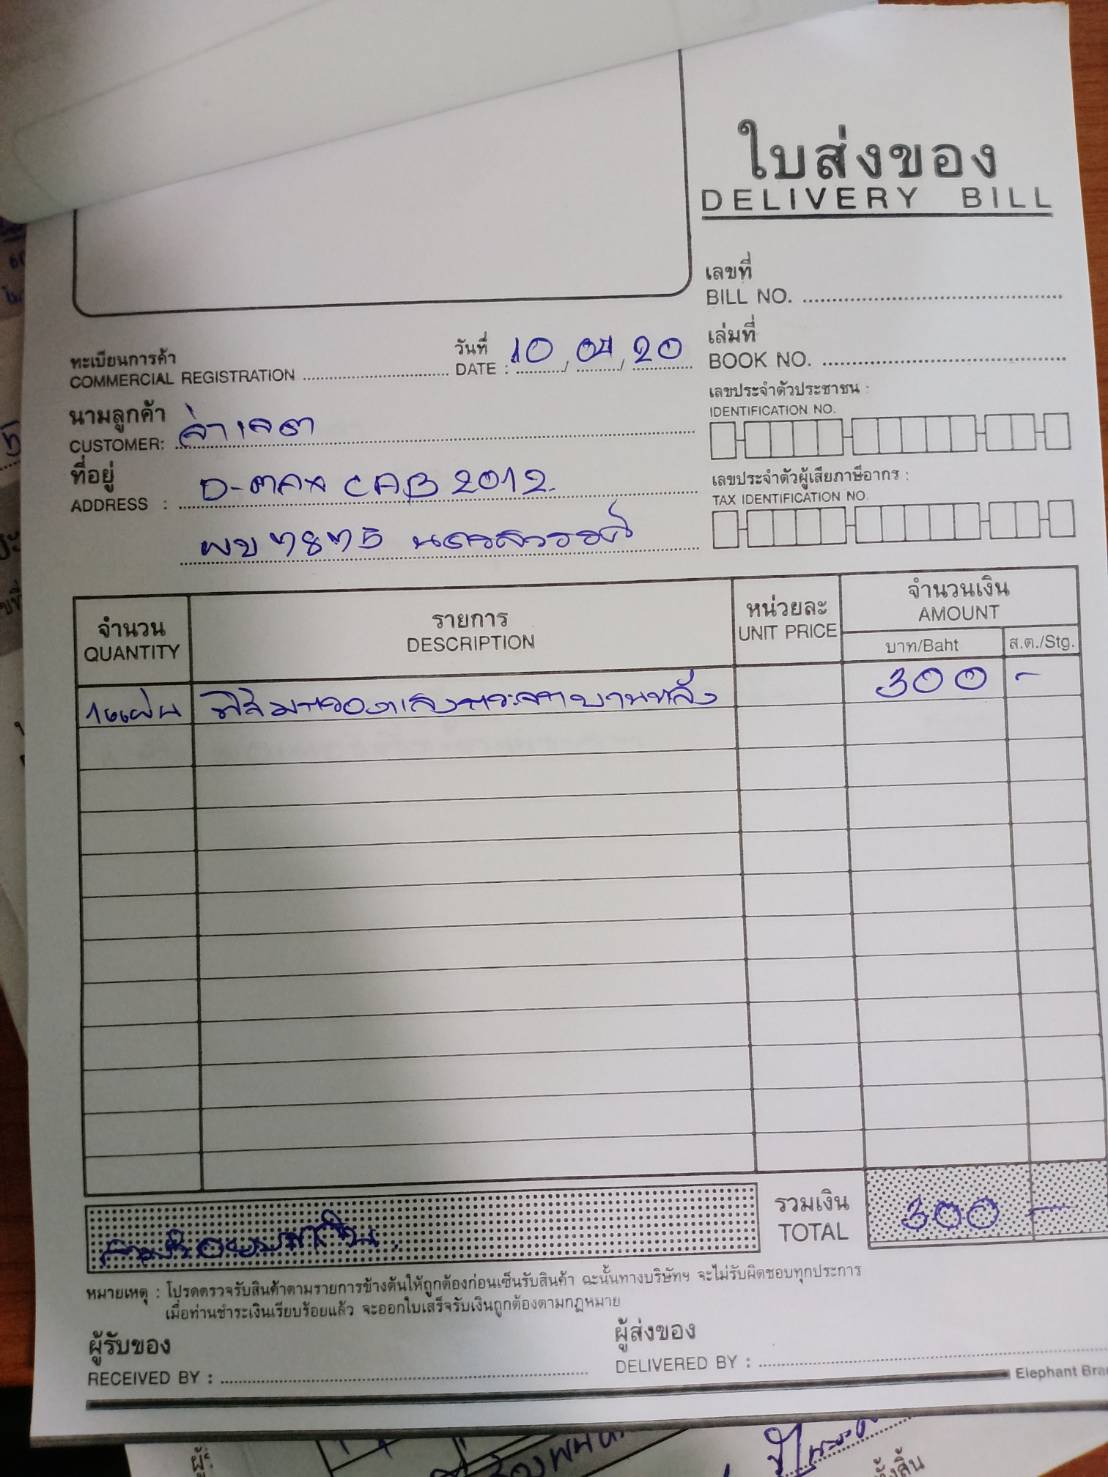 ใบส่งของ
DELIVERY BILL
เลขที่
BILL NO.
ทะเบียนการค้า
COMMERCIAL REGISTRATION
วันที่
DATE : 10 / 04 / 20
เล่มที่
BOOK NO.
นามลูกค้า
CUSTOMER:
เลขประจำตัวประชาชน :
IDENTIFICATION NO.
ที่อยู่
ADDRESS : D-max CAB 2012
เลขประจำตัวผู้เสียภาษีอากร :
TAX IDENTIFICATION NO.
นครสวรรค์
จำนวน
QUANTITY
รายการ
DESCRIPTION
หน่วยละ
UNIT PRICE
จำนวนเงิน
AMOUNT
บาท/Baht
ส.ต./Stg.
1แผ่น ฟิล์มกรองแสงกระจกบานหลัง 300 -
รวมเงิน
TOTAL
300 -
สามร้อยบาทถ้วน.
หมายเหตุ : โปรดตรวจรับสินค้าตามรายการข้างต้นให้ถูกต้องก่อนเซ็นรับสินค้า ฉะนั้นทางบริษัทฯ จะไม่รับผิดชอบทุกประการ
เมื่อท่านชำระเงินเรียบร้อยแล้ว จะออกใบเสร็จรับเงินถูกต้องตามกฎหมาย
ผู้รับของ
RECEIVED BY :
ผู้ส่งของ
DELIVERED BY :
Elephant Bra